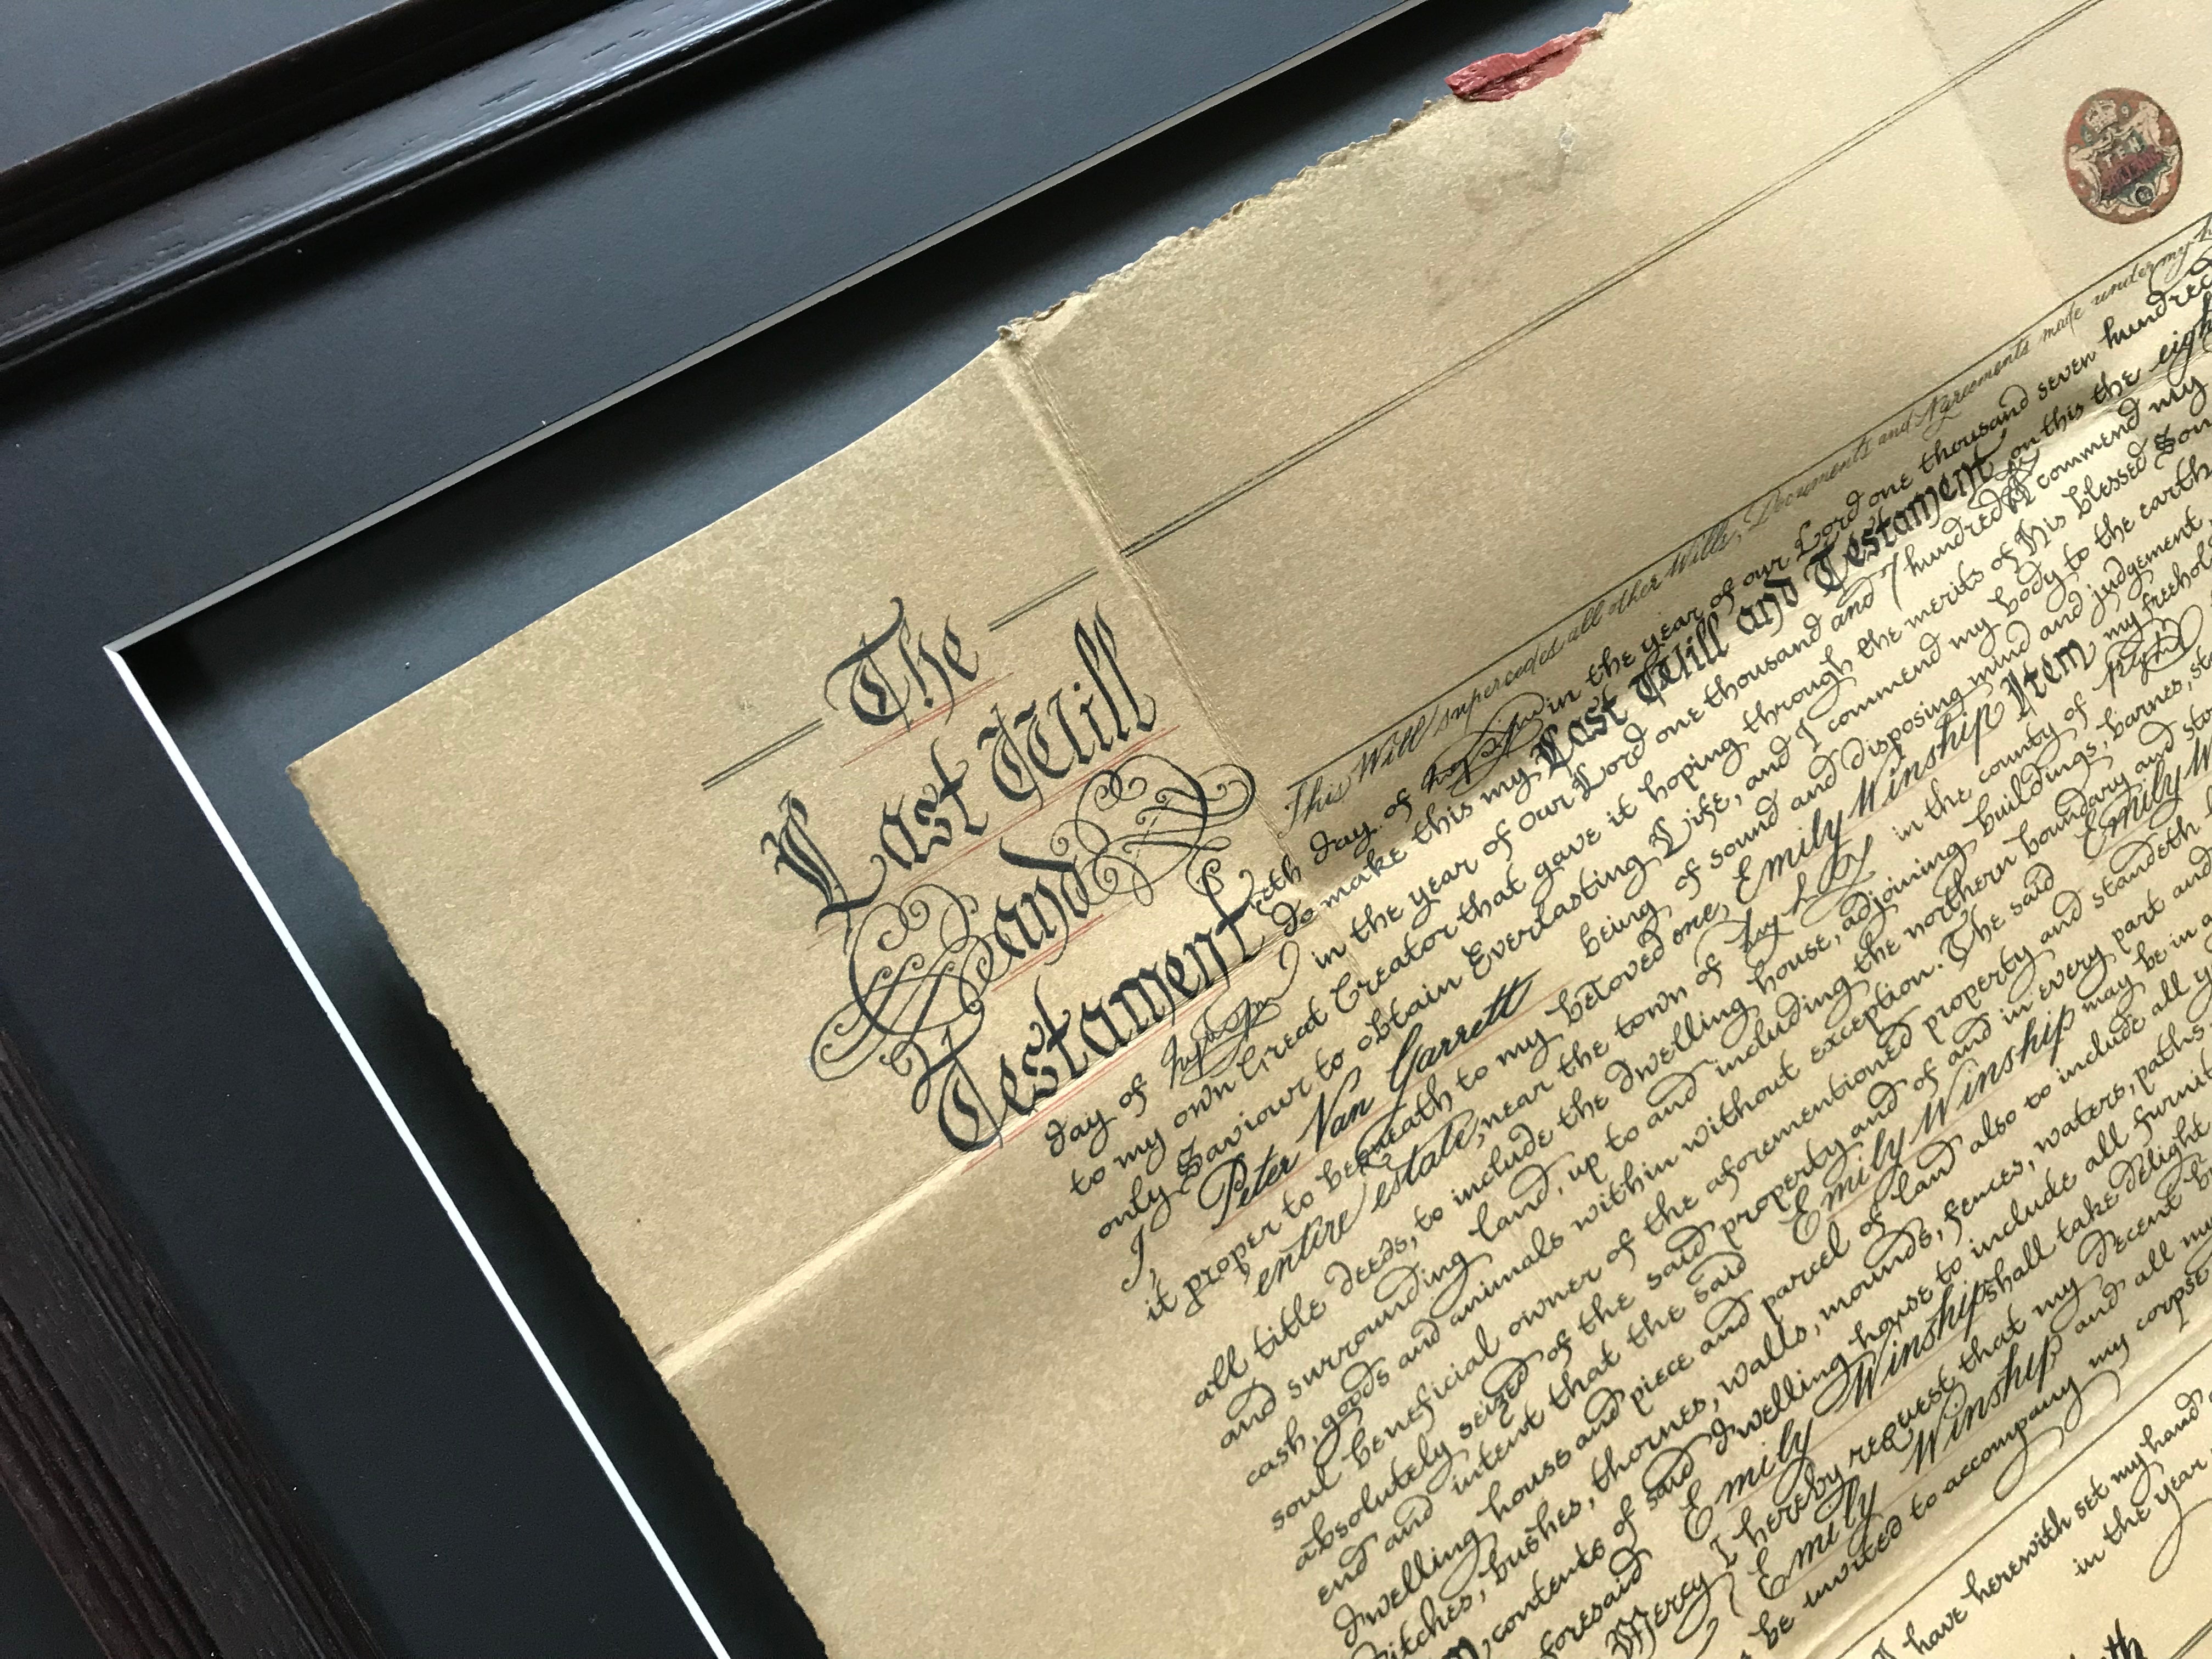 TEN
The
Last Will
and
Testament
This Will supercedes all other Wills, Documents and Agreements made under my
day of in the year of our Lord one thousand seven hundred
Do make this my Last Will and Testament on this the
day of in the year of our Lord one thousand and hundred I commend my
to my own Great Creator that gave it hoping through the merits of His blessed Son
only Saviour to obtain Everlasting Life, and I commend my body to the earth
I, Peter Van Garrett being of sound and disposing mind and judgement,
it proper to bequeath to my beloved one, Emily Winship Item my freehold
entire estate, near the town of in the county of
all title deeds, to include the dwelling house, adjoining buildings, barnes,
and surrounding land, up to and including the northern boundary and
cash, goods and animals within without exception. The said Emily
soul beneficial owner of the aforementioned property and standeth
absolutely seized of the said property and of and in every part and
end and intent that the said Emily Winship may be in
dwelling house and piece and parcel of land also to include all
ditches, bushes, thornes, walls, mounds, fences, waters, paths,
contents of said dwelling house to include all
Emily Winship shall take delight
Mercy I hereby request that my decent
Emily Winship and all
be invited to accompany my corpse
I have herewith set my hand
in the year